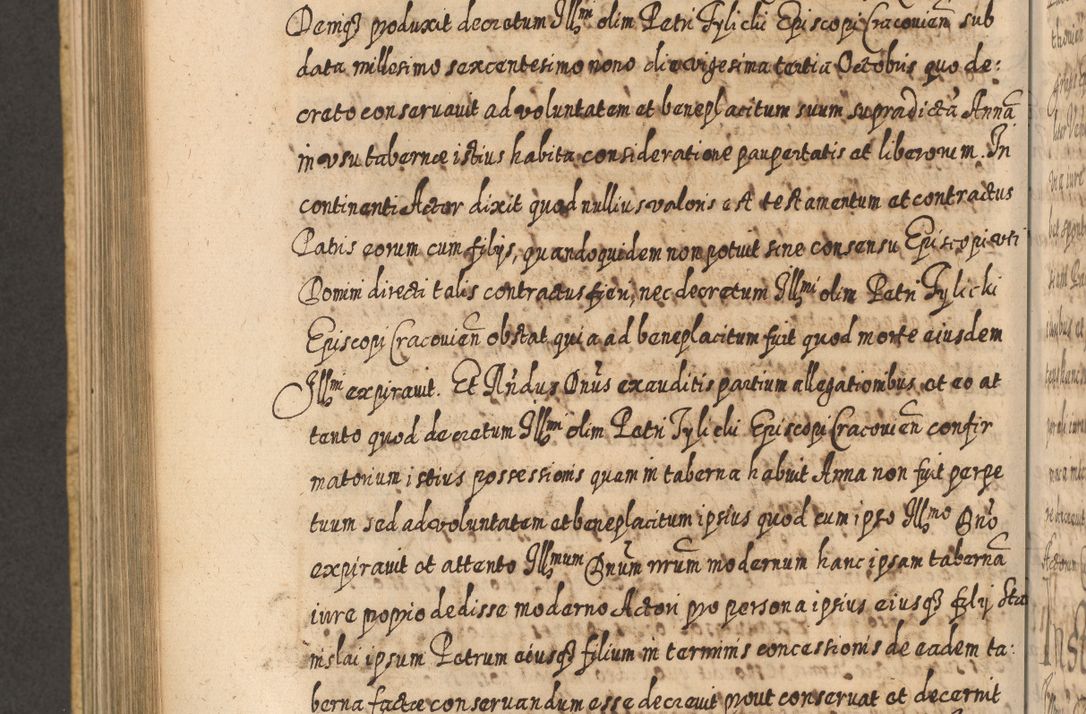 Deniq3 produxit decretum Illmi olim Petri Tylicki Episcopi Cracovien sub
data millesimo sexcentesimo nono die vigesima tertia Octobris quo de:
creto conservavit ad voluntatem et beneplacitum suum supradictã Annã
in vsu tabernæ istius habita consideratione paupertatis et liberorum. In
continenti Actor dixit quod nullius valoris est testamentum et contractus
Patris eorum cum filijs, quandoquidem non potuit sine consensu Episcopi vti
Domini directi talis contractus fieri, nec decretum Illmi olim Petri Tylicki
Episcopi Cracovien obstat quia ad beneplacitum fuit quod morte eiusdem
Illmi expiravit. Et Rndus Dnus exauditis partium allegationibus et eo at
tento quod decretum Illmi olim Petri Tylicki Episcopi Cracovien confir
matorium istius possessionis quam in taberna habuit Anna non fuit perpe
tuum sed ad voluntatem et beneplacitum ipsius quod cum ipso Illmo Dno
expiravit et attento Illmum Dnum nrum modernum hanc ipsam tabernã
iure proprio dedisse moderno Actori pro persona ipsius eiusq3 filij Sta
nislai ipsum Petrum eiusq3 filium in terminis concessionis de eadem ta:
berna factæ conservandum esse decrevit prout conservat et decernit